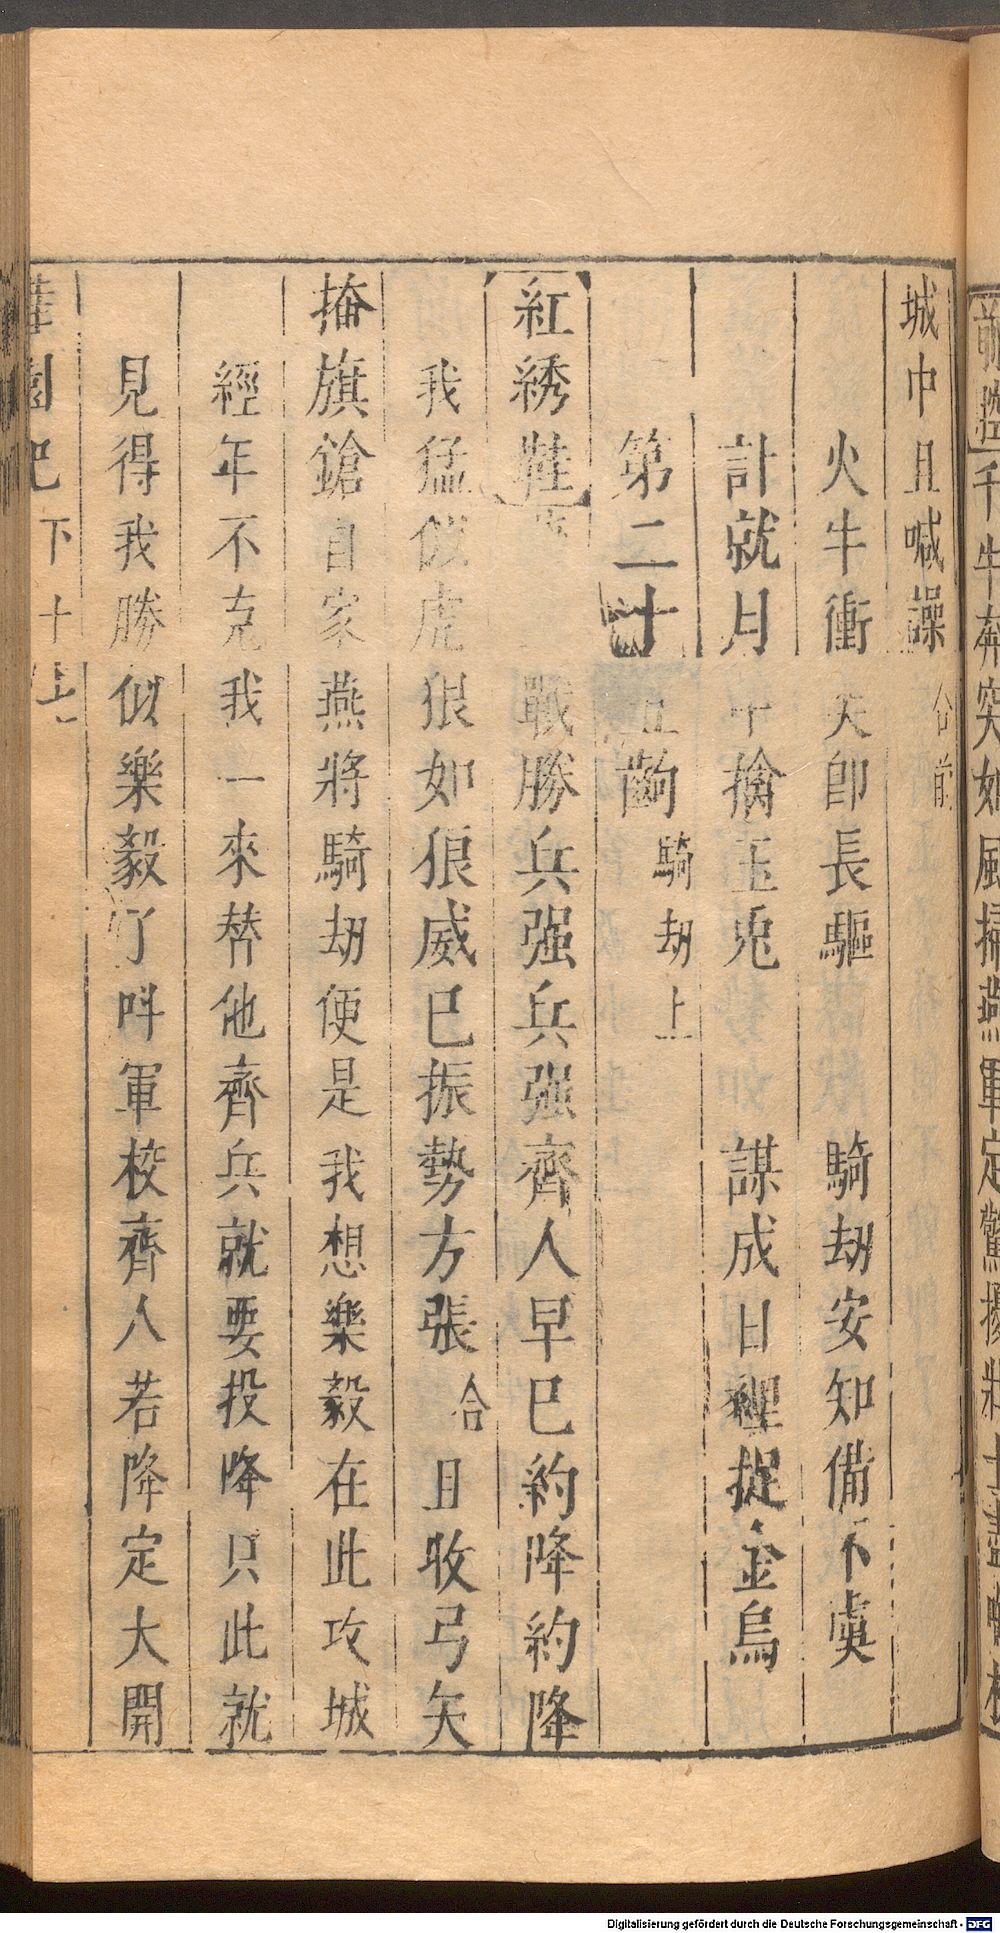 千牛奔突如風掃燕軍定驚擾將士盡
城中且喊譟合前
火牛衝突卽長驅 騎劫安知備不虞
計就月中擒玉兎 謀成日裡捉金烏
第二十五齣 騎劫上
【紅綉鞋】戰勝兵强兵强齊人早巳約降約降
我猛似虎狠如狼威巳振勢方張合且收弓矢
揜旗鎗自家燕將騎劫便是我想樂毅在此攻城
經年不克我一來替他齊兵就要投降只此就
見得我勝似樂毅了呌軍校齊人若降定大開
園記 下 十七
Digitalisierung gefördert durch die Deutsche Forschungsgemeinschaft - DFG